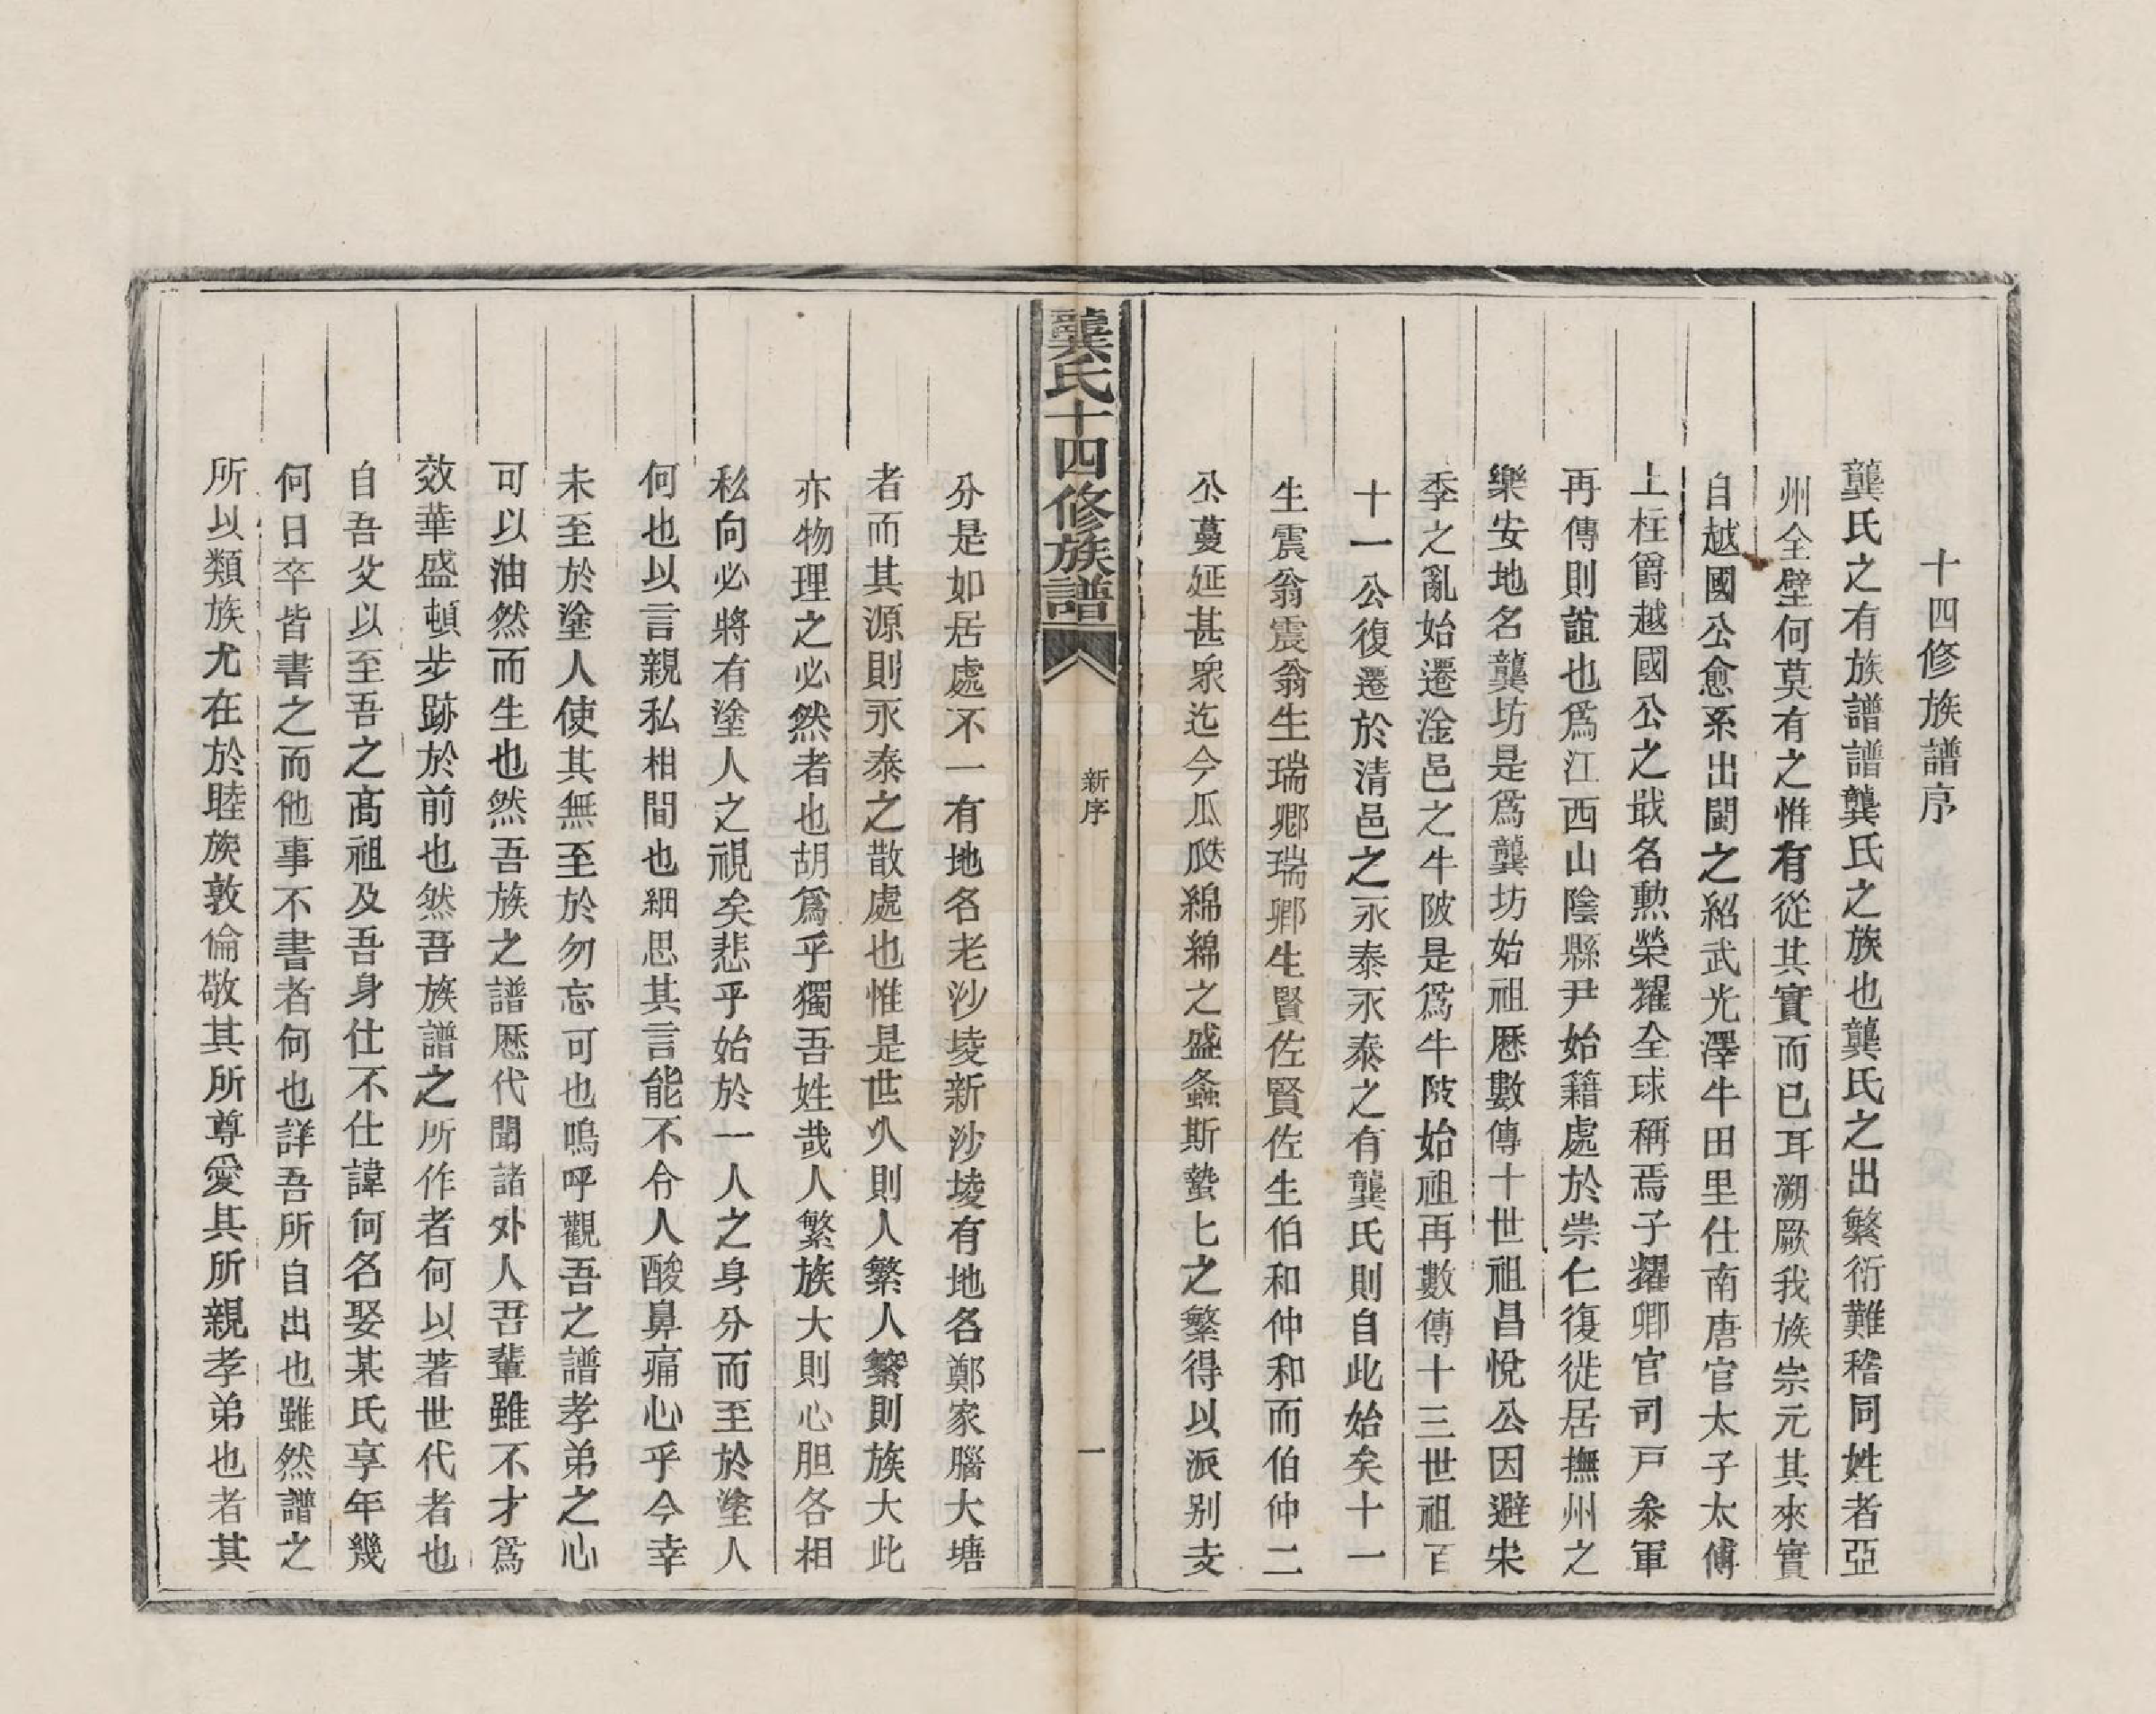 十四修族譜序
龔氏之有族譜譜龔氏之族也龔氏之出繁衍難稽同姓者亞
州全壁何莫有之惟有從其實而已耳溯厥我族崇元其來實
自越國公愈系出閩之紹武光澤牛田里仕南唐官太子太傅
上柱爵越國公之戢名勲榮耀全球稱焉子耀卿官司戸叅軍
再傳則誼也爲江西山陰縣尹始籍處於崇仁復徙居撫州之
樂安地名龔坊是爲龔坊始祖厯數傳十世祖昌悅公因避宋
季之亂始遷淦邑之牛陂是爲牛陂始祖再數傳十三世祖百
十一公復遷於清邑之永泰永泰之有龔氏則自此始矣十一
生震翁震翁生瑞卿瑞卿生賢佐賢佐生伯和仲和而伯仲二
公蔓延甚衆迄今瓜瓞綿綿之盛螽斯蟄七之繁得以派别支
龔氏十四修族譜
新序
一
分是如居處不一有地名老沙堎新沙堎有地名鄭家腦大塘
者而其源則永泰之散處也惟是世久則人繁人繁則族大此
亦物理之必然者也胡爲乎獨吾姓哉人繁族大則心胆各相
私向必將有塗人之視矣悲乎始於一人之身分而至於塗人
何也以言親私相間也細思其言能不令人酸鼻痛心乎今幸
未至於塗人使其無至於勿忘可也嗚呼觀吾之譜孝弟之心
可以油然而生也然吾族之譜厯代聞諸外人吾輩雖不才爲
效華盛頓步跡於前也然吾族譜之所作者何以著世代者也
自吾父以至吾之高祖及吾身仕不仕諱何名娶某氏享年幾
何日卒皆書之而他事不書者何也詳吾所自出也雖然譜之
所以類族尤在於睦族敦倫敬其所尊愛其所親孝弟也者其